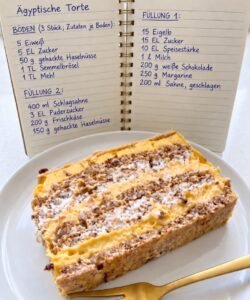 Ägyptische Torte
BODEN (3 Stück, Zutaten je Boden):
5 Eiweiß
5 EL Zucker
50 g gehackte Haselnüsse
1 TL Semmelbrösel
1 TL Mehl
FÜLLUNG 2:
400 ml Schlagsahne
3 EL Puderzucker
200 g Frischkäse
150 g gehackte Haselnüsse
FÜLLUNG 1:
15 Eigelb
15 EL Zucker
10 EL Speisestärke
1 L Milch
200 g weiße Schokolade
250 g Margarine
200 ml Sahne, geschlagen